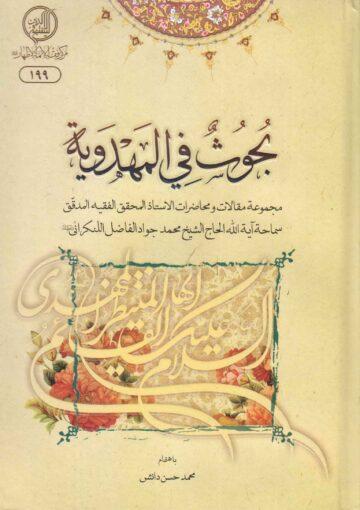 مركز فقه الأئمة الأطهار
١٩٩
بُحُوثٌ فِي المَهْدَوِيَّة
مجموعة مقالات و محاضرات الاستاذ المحقق الفقيه المدقّق
سماحة آية الله الحاج الشيخ محمد جواد الفاضل اللنكراني
السلام عليك ايها القائم المنتظر المهدي
باهتمام
محمد حسن دانش